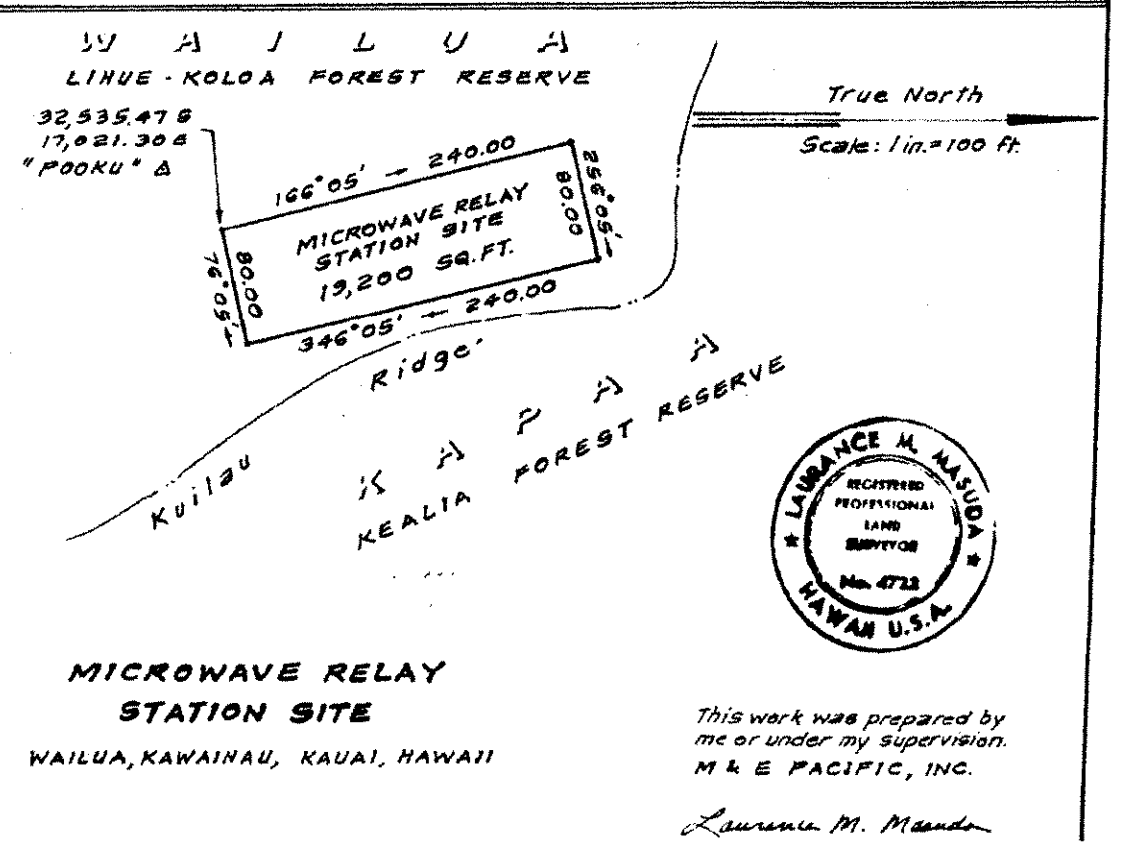 WAILUA
LIHUE - KOLOA FOREST RESERVE
32,535.47 S
17,021.30 E
"POOKU" Δ
True North
Scale: 1 in.=100 ft.
166°05' → 240.00
256°05' →
80.00
MICROWAVE RELAY
STATION SITE
19,200 SQ.FT.
80.00
76°05' ←
346°05' ← 240.00
Kuilau Ridge
KAPAA
KEALIA FOREST RESERVE
LAURANCE M. MASUDA
REGISTERED
PROFESSIONAL
LAND
SURVEYOR
No. 4722
★ HAWAII U.S.A. ★
MICROWAVE RELAY
STATION SITE
WAILUA, KAWAIHAU, KAUAI, HAWAII
This work was prepared by
me or under my supervision.
M & E PACIFIC, INC.
Laurance M. Masuda